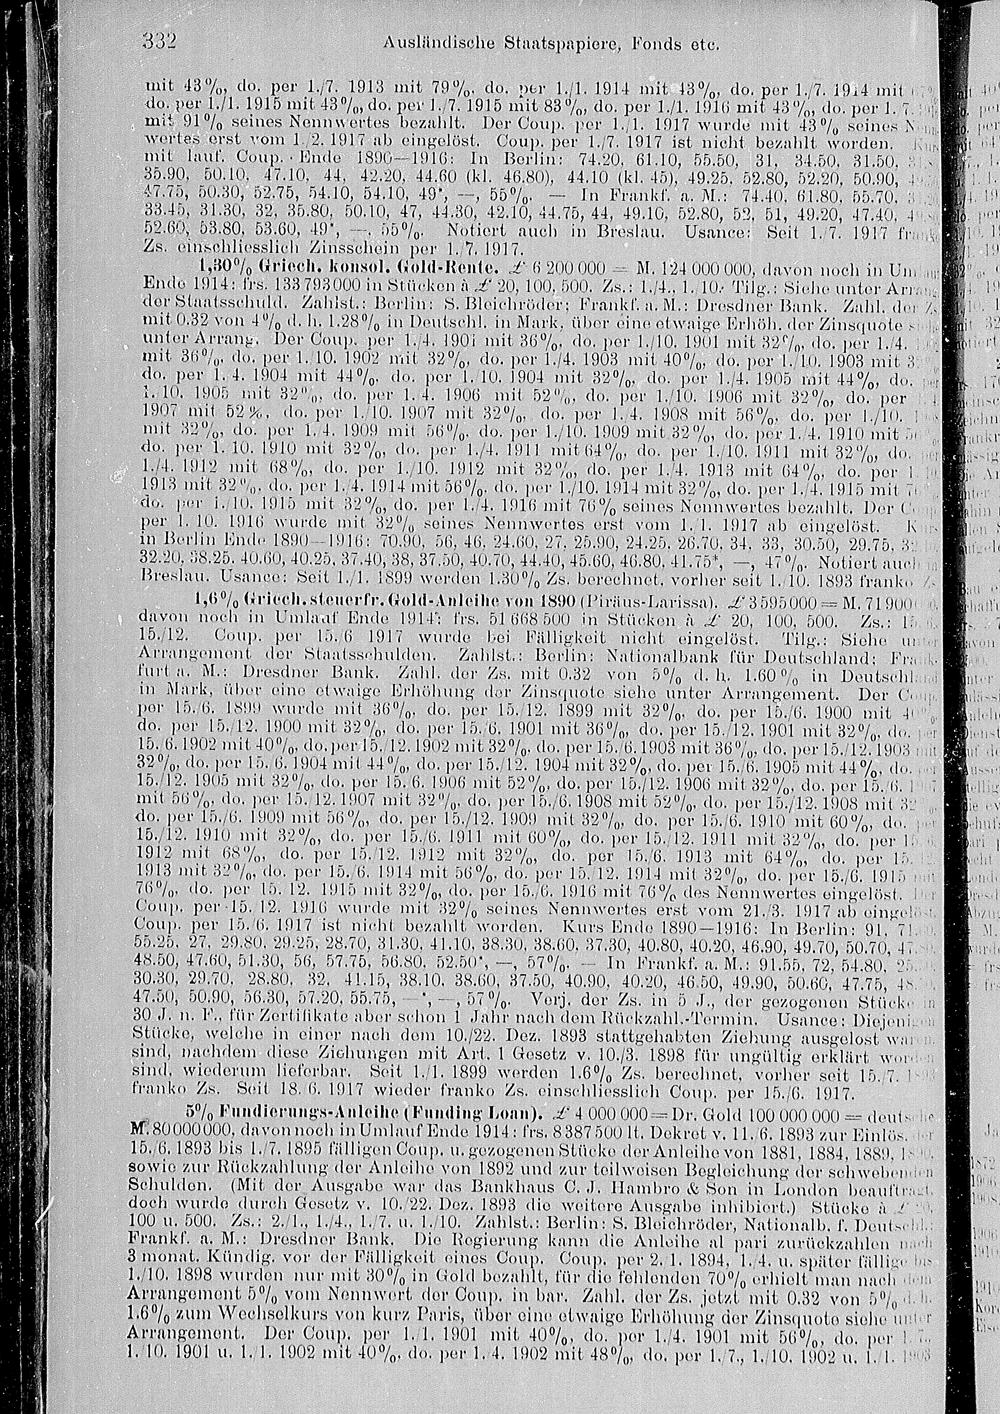 332 Ausländische Staatspapiere, Fonds etc.
mit 43%, do. per 1./7. 1913 mit 79%, do. per 1./1. 1914 mit 43%, do. per 1./7. 1914 mit
do. per 1./1. 1915 mit 43%, do. per 1./7. 1915 mit 83%, do. per 1./1. 1916 mit 43%, do. per 1. 7.
mit 91% seines Nennwertes bezahlt. Der Coup. per 1./1. 1917 wurde mit 43% seines
wertes erst vom 1./2. 1917 ab eingelöst. Coup. per 1./7. 1917 ist nicht bezahlt worden.
mit lauf. Coup. Ende 1890—1916: In Berlin: 74.20, 61.10, 55.50, 31, 34.50, 31.50,
35.90, 50.10, 47.10, 44, 42.20, 44.60 (kl. 46.80), 44.10 (kl. 45), 49.25, 52.80, 52.20, 50.90,
47.75, 50.30, 52.75, 54.10, 54.10, 49*, —, 55%. — In Frankf. a. M.: 74.40, 61.80, 55.70,
33.45, 31.30, 32, 35.80, 50.10, 47, 44.30, 42.10, 44.75, 44, 49.10, 52.80, 52, 51, 49.20, 47.40,
52.60, 53.80, 53.60, 49*, —, 55%. Notiert auch in Breslau. Usance: Seit 1. 7. 1917
Zs. einschliesslich Zinsschein per 1./7. 1917.
1,30% Griech. konsol. Gold-Rente. £ 6 200 000 = M. 124 000 000, davon noch in
Ende 1914: frs. 133 793 000 in Stücken à £ 20, 100, 500. Zs.: 1./4., 1. 10. Tilg.: Siehe unter
der Staatsschuld. Zahlst.: Berlin: S. Bleichröder; Frankf. a. M.: Dresdner Bank. Zahl. der
mit 0.32 von 4% d. h. 1.28% in Deutschl. in Mark, über eine etwaige Erhöh. der Zinsquote
unter Arrang. Der Coup. per 1./4. 1901 mit 36%, do. per 1./10. 1901 mit 32%, do. per 1./4.
mit 36%, do. per 1./10. 1902 mit 32%, do. per 1./4. 1903 mit 40%, do. per 1./10. 1903 mit
do. per 1. 4. 1904 mit 44%, do. per 1. 10. 1904 mit 32%, do. per 1./4. 1905 mit 44%, do.
1. 10. 1905 mit 32%, do. per 1. 4. 1906 mit 52%, do. per 1./10. 1906 mit 32%, do. per
1907 mit 52%, do. per 1./10. 1907 mit 32%, do. per 1. 4. 1908 mit 56%, do. per 1./10.
mit 32%, do. per 1. 4. 1909 mit 56%, do. per 1./10. 1909 mit 32%, do. per 1. 4. 1910 mit
do. per 1. 10. 1910 mit 32%, do. per 1./4. 1911 mit 64%, do. per 1./10. 1911 mit 32%, do.
1./4. 1912 mit 68%, do. per 1./10. 1912 mit 32%, do. per 1./4. 1913 mit 64%, do. per
1913 mit 32%, do. per 1./4. 1914 mit 56%, do. per 1./10. 1914 mit 32%, do. per 1./4. 1915 mit
do. per 1./10. 1915 mit 32%, do. per 1./4. 1916 mit 76% seines Nennwertes bezahlt. Der
per 1. 10. 1916 wurde mit 32% seines Nennwertes erst vom 1. 1. 1917 ab eingelöst.
in Berlin Ende 1890—1916: 70.90, 56, 46, 24.60, 27, 25.90, 24.25, 26.70, 34, 33, 30.50, 29.75,
32.20, 38.25, 40.60, 40.25, 37.40, 38, 37.50, 40.70, 44.40, 45.60, 46.80, 41.75*, —, 47%. Notiert auch
Breslau. Usance: Seit 1./1. 1899 werden 1.30% Zs. berechnet, vorher seit 1./10. 1893 franko
1,6% Griech. steuerfr. Gold-Anleihe von 1890 (Piräus-Larissa). £ 3 595 000 = M. 71 900
davon noch in Umlauf Ende 1914: frs. 51 668 500 in Stücken à £ 20, 100, 500. Zs.:
15./12. Coup. per 15./6 1917 wurde bei Fälligkeit nicht eingelöst. Tilg.: Siehe
Arrangement der Staatsschulden. Zahlst.: Berlin: Nationalbank für Deutschland;
furt a. M.: Dresdner Bank. Zahl. der Zs. mit 0.32 von 5% d. h. 1.60% in
in Mark, über eine etwaige Erhöhung der Zinsquote siehe unter Arrangement. Der
per 15./6. 1899 wurde mit 36%, do. per 15./12. 1899 mit 32%, do. per 15./6. 1900 mit
do. per 15./12. 1900 mit 32%, do. per 15./6. 1901 mit 36%, do. per 15./12. 1901 mit 32%, do.
15. 6. 1902 mit 40%, do. per 15./12. 1902 mit 32%, do. per 15./6. 1903 mit 36%, do. per 15./12. 1903
32%, do. per 15. 6. 1904 mit 44%, do. per 15./12. 1904 mit 32%, do. per 15./6. 1905 mit 44%, do.
15./12. 1905 mit 32%, do. per 15. 6. 1906 mit 52%, do. per 15./12. 1906 mit 32%, do. per 15./6.
mit 56%, do. per 15. 12. 1907 mit 32%, do. per 15./6. 1908 mit 52%, do. per 15./12. 1908 mit
do. per 15./6. 1909 mit 56%, do. per 15./12. 1909 mit 32%, do. per 15./6. 1910 mit 60%, do.
15./12. 1910 mit 32%, do. per 15./6. 1911 mit 60%, do. per 15./12. 1911 mit 32%, do. per
1912 mit 68%, do. per 15./12. 1912 mit 32%, do. per 15./6. 1913 mit 64%, do. per 15.
1913 mit 32%, do. per 15./6. 1914 mit 56%, do. per 15./12. 1914 mit 32%, do. per 15./6. 1915
76%, do. per 15. 12. 1915 mit 32%, do. per 15./6. 1916 mit 76% des Nennwertes eingelöst.
Coup. per 15. 12. 1916 wurde mit 32% seines Nennwertes erst vom 21./3. 1917 ab
Coup. per 15./6. 1917 ist nicht bezahlt worden. Kurs Ende 1890—1916: In Berlin: 91,
55.25, 27, 29.80, 29.25, 28.70, 31.30, 41.10, 38.30, 38.60, 37.30, 40.80, 40.20, 46.90, 49.70, 50.70,
48.50, 47.60, 51.30, 56, 57.75, 56.80, 52.50*, —, 57%. — In Frankf. a. M.: 91.55, 72, 54.80,
30.30, 29.70, 28.80, 32, 41.15, 38.10, 38.60, 37.50, 40.90, 40.20, 46.50, 49.90, 50.60, 47.75,
47.50, 50.90, 56.30, 57.20, 55.75, —*, —, 57%. Verj. der Zs. in 5 J., der gezogenen Stücke in
30 J. n. F., für Zertifikate aber schon 1 Jahr nach dem Rückzahl.-Termin. Usance: Diejenigen
Stücke, welche in einer nach dem 10./22. Dez. 1893 stattgehabten Ziehung ausgelost
sind, nachdem diese Ziehungen mit Art. 1 Gesetz v. 10./3. 1898 für ungültig erklärt
sind, wiederum lieferbar. Seit 1./1. 1899 werden 1.6% Zs. berechnet, vorher seit 15./7.
franko Zs. Seit 18./6. 1917 wieder franko Zs. einschliesslich Coup. per 15./6. 1917.
5% Fundierungs-Anleihe (Funding Loan). £ 4 000 000 = Dr. Gold 100 000 000 =
M. 80 000 000, davon noch in Umlauf Ende 1914: frs. 8 387 500 lt. Dekret v. 11./6. 1893 zur Einlös.
15./6. 1893 bis 1./7. 1895 fälligen Coup. u. gezogenen Stücke der Anleihe von 1881, 1884, 1889,
sowie zur Rückzahlung der Anleihe von 1892 und zur teilweisen Begleichung der schwebenden
Schulden. (Mit der Ausgabe war das Bankhaus C. J. Hambro & Son in London beauftragt,
doch wurde durch Gesetz v. 10./22. Dez. 1893 die weitere Ausgabe inhibiert.) Stücke à £ 20,
100 u. 500. Zs.: 2./1., 1./4., 1./7. u. 1./10. Zahlst.: Berlin: S. Bleichröder, Nationalb. f. Deutschl.;
Frankf. a. M.: Dresdner Bank. Die Regierung kann die Anleihe al pari zurückzahlen nach
3 monat. Kündig. vor der Fälligkeit eines Coup. Coup. per 2. 1. 1894, 1./4. u. später fällige bis
1./10. 1898 wurden nur mit 30% in Gold bezahlt, für die fehlenden 70% erhielt man nach dem
Arrangement 5% vom Nennwert der Coup. in bar. Zahl. der Zs. jetzt mit 0.32 von 5% d. h.
1.6% zum Wechselkurs von kurz Paris, über eine etwaige Erhöhung der Zinsquote siehe unter
Arrangement. Der Coup. per 1. 1. 1901 mit 40%, do. per 1./4. 1901 mit 56%, do. per 1. 7.,
1. 10. 1901 u. 1./1. 1902 mit 40%, do. per 1. 4. 1902 mit 48%, do. per 1./7., 1./10. 1902 u. 1./1. 1903